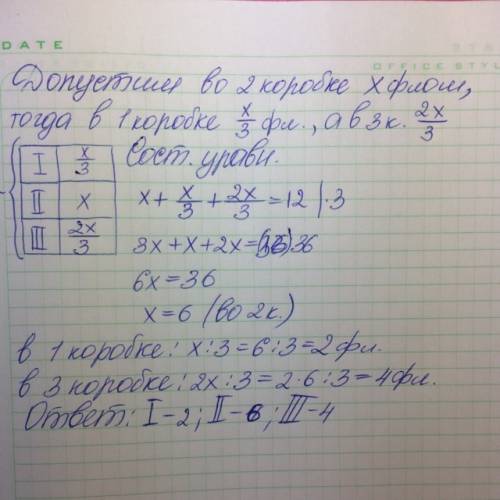 DATE
OFFICE STYL
Допустим во 2 коробке x флом,
тогда в 1 коробке x/3 фл., а в 3 к. 2x/3
I x/3
II x
III 2x/3
Сост. уравн.
x + x/3 + 2x/3 = 12 | ·3
3x + x + 2x = 36
6x = 36
x = 6 (во 2 к.)
в 1 коробке: x : 3 = 6 : 3 = 2 фл.
в 3 коробке: 2x : 3 = 2 · 6 : 3 = 4 фл.
Ответ: I - 2; II - 6; III - 4